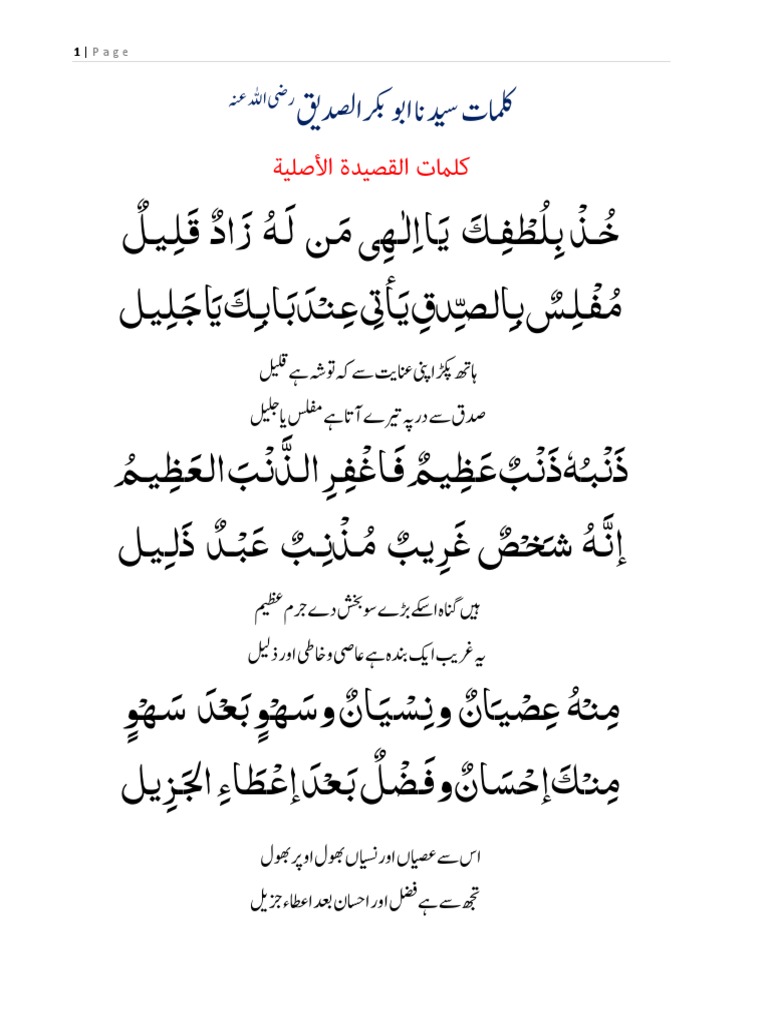 1 | Page
کلمات سیدنا ابو بکر الصدیق رضی اللہ عنہ
كلمات القصيدة الأصلية
خُذْ بِلُطْفِكَ يَا اِلٰهِى مَن لَهُ زَادٌ قَلِيلٌ
مُفْلِسٌ بِالصِّدقِ يَأتِى عِنْدَ بَابِكَ يَا جَلِيل
ہاتھ پکڑ اپنی عنایت سے کہ توشہ ہے قلیل
صدق سے در پہ تیرے آتا ہے مفلس یا جلیل
ذَنْبُهٗ ذَنْبٌ عَظِيمٌ فَاغْفِرِ الذَّنْبَ العَظِيمُ
إنَّهُ شَخْصٌ غَرِيبٌ مُذْنِبٌ عَبْدٌ ذَلِيل
ہیں گناہ اسکے بڑے سو بخش دے جرم عظیم
یہ غریب ایک بندہ ہے عاصی و خاطی اور ذلیل
مِنْهُ عِصْيَانٌ و نِسْيَانٌ و سَهْوٍ بَعْدَ سَهْوٍ
مِنْكَ إحْسَانٌ و فَضْلٌ بَعْدَ إعْطَاءِ الجَزِيل
اس سے عصیاں اور نسیاں بھول اوپر بھول
تجھ سے ہے فضل اور احسان بعد اعطاء جزیل